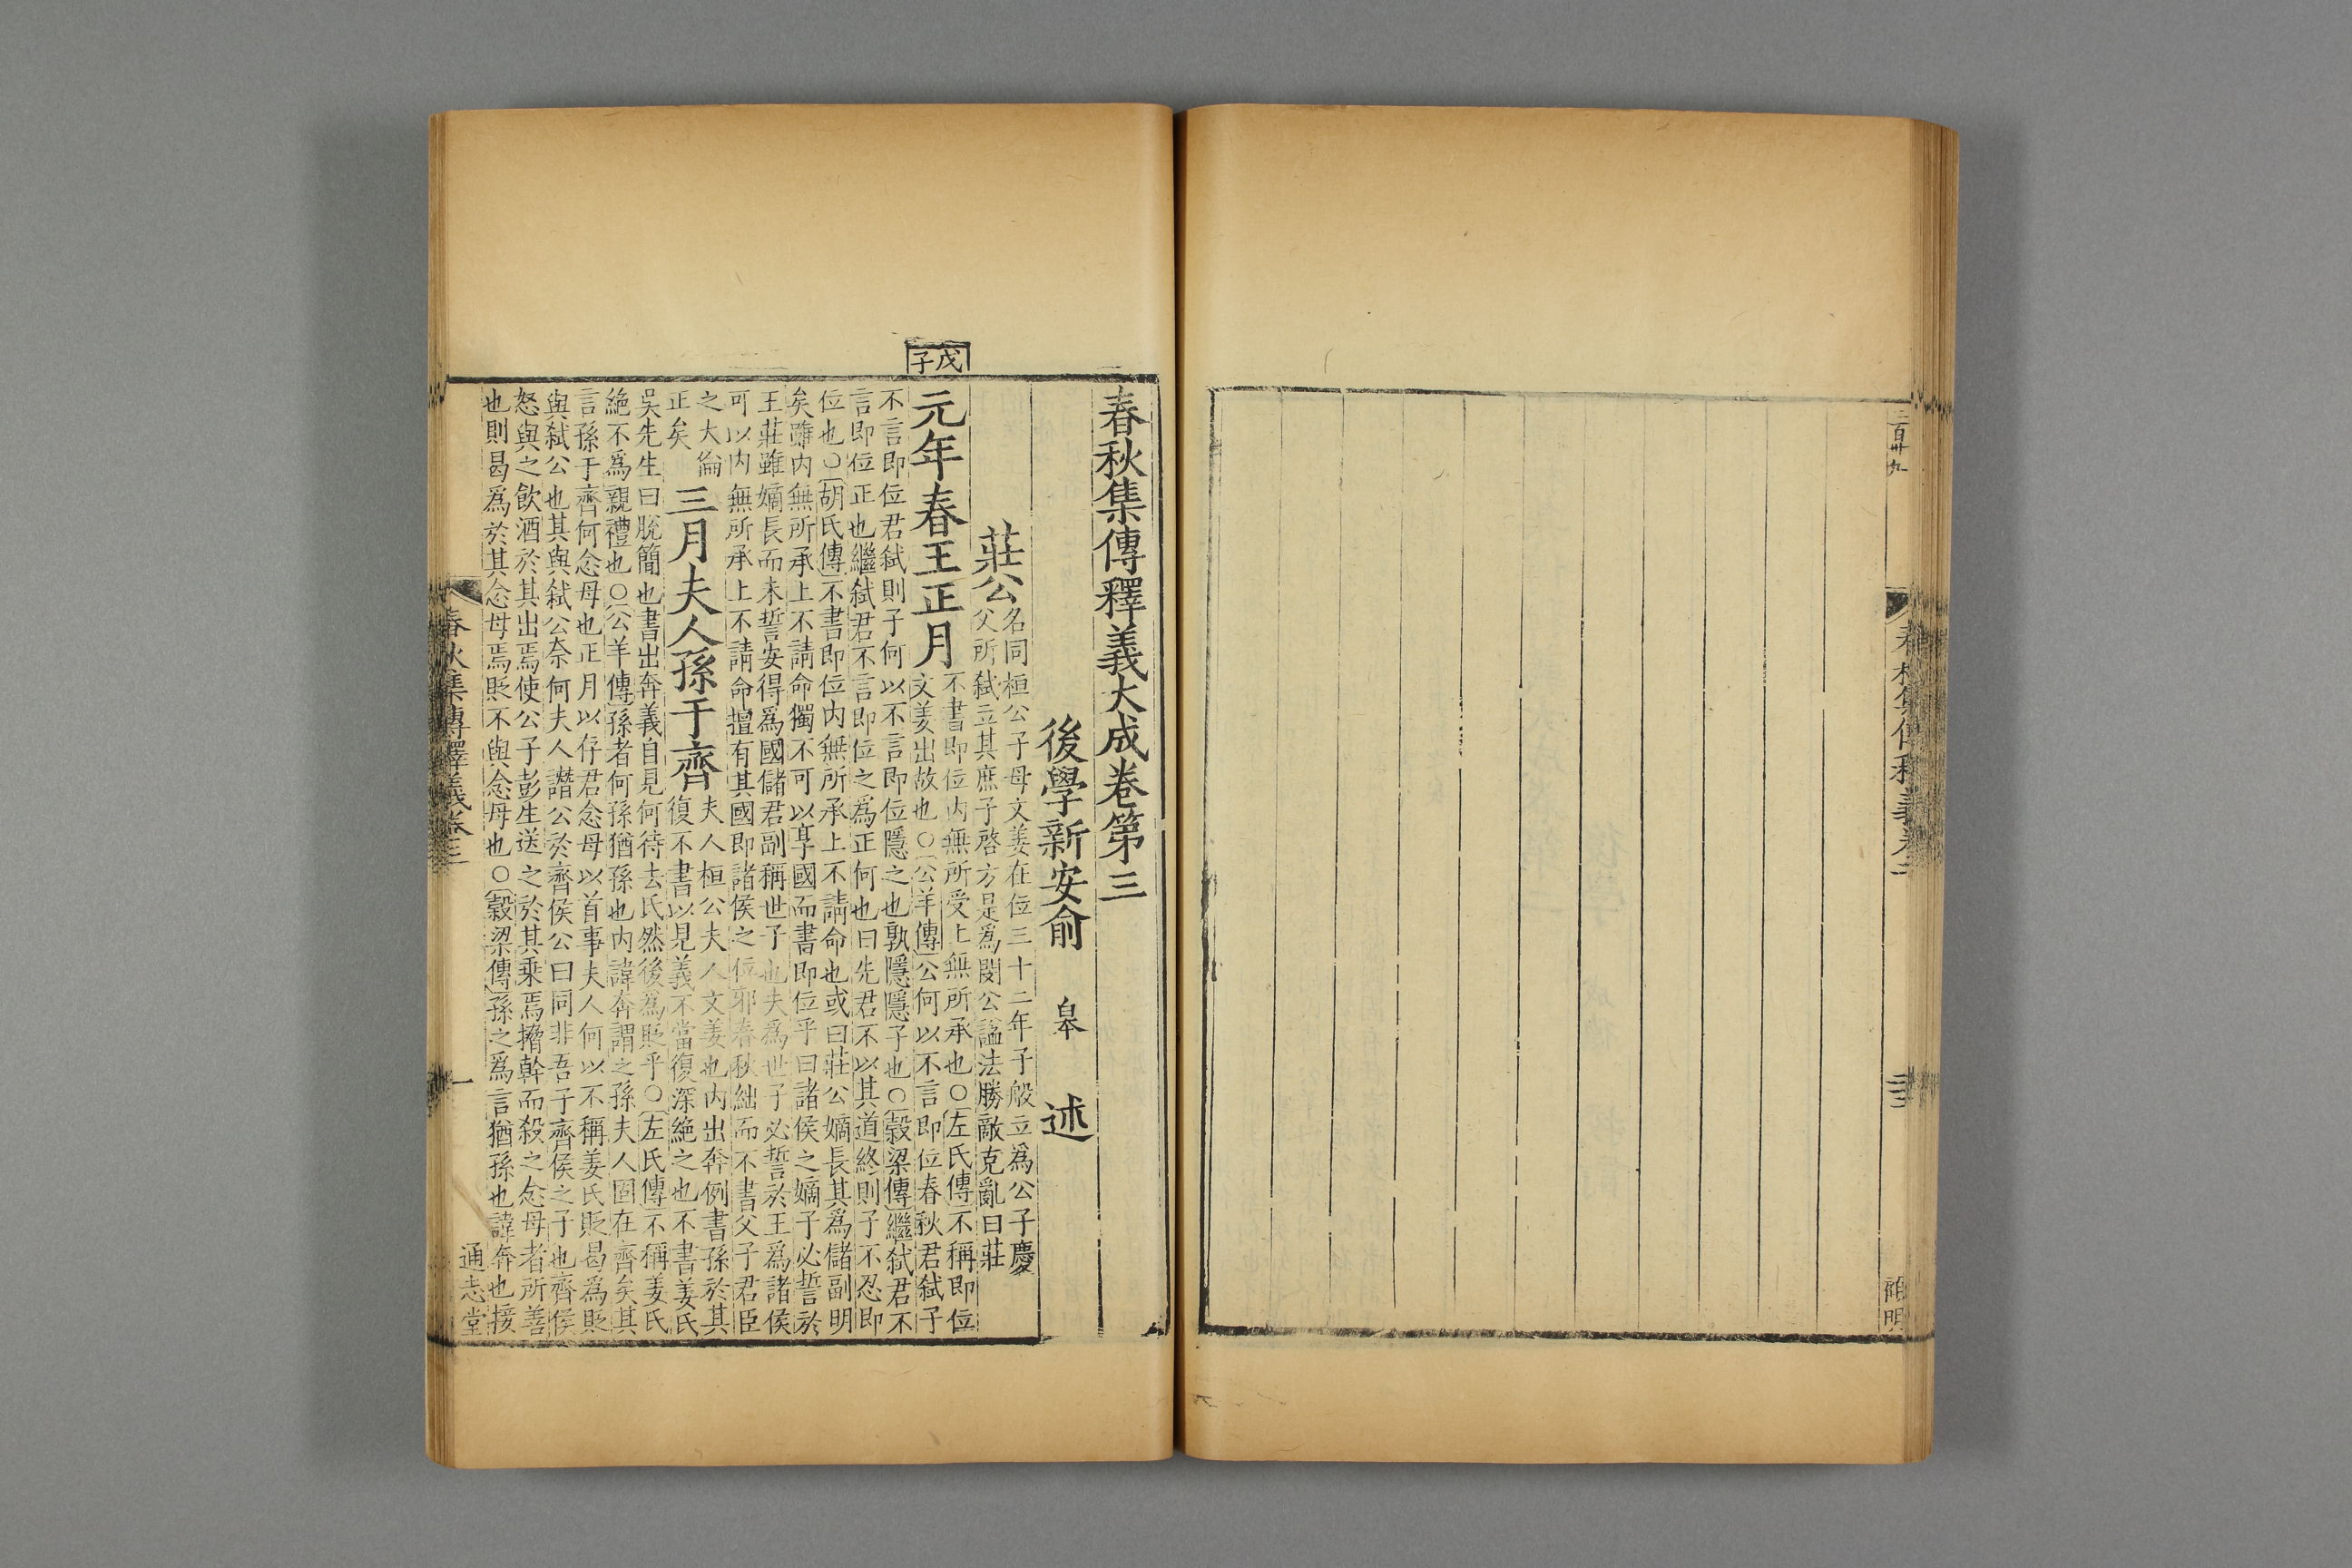 春秋集傳釋義大成卷第三
後學新安俞 皐 述
莊公
名同桓公子母文姜在位三十二年子般立爲公子慶
父所弒立其庶子啓方是爲閔公謚法勝敵克亂曰莊
戊子
元年春王正月
不書即位内無所受上無所承也○左氏傳不稱即位
文姜出故也○公羊傳公何以不言即位春秋君弒子
不言即位君弒則子何以不言即位隱之也孰隱隱子也○穀梁傳繼弒君不
言即位正也繼弒君不言即位之爲正何也曰先君不以其道終則子不忍即
位也○胡氏傳不書即位内無所承上不請命也或曰莊公嫡長其爲儲副明
矣雖内無所承上不請命獨不可以享國而書即位乎曰諸侯之嫡子必誓於
王莊雖嫡長而未誓安得爲國儲君副稱世子也夫爲世子必誓於王爲諸侯
可以内無所承上不請命擅有其國即諸侯之位邪春秋絀而不書父子君臣
之大倫
正矣
三月夫人孫于齊
夫人桓公夫人文姜也内出奔例書孫於其
復不書以見義不當復深絶之也不書姜氏
吳先生曰脫簡也書出奔義自見何待去氏然後爲貶乎○左氏傳不稱姜氏
絶不爲親禮也○公羊傳孫者何孫猶孫也内諱奔謂之孫夫人固在齊矣其
言孫于齊何念母也正月以存君念母以首事夫人何以不稱姜氏貶曷爲貶
與弒公也其與弒公奈何夫人譖公於齊侯公曰同非吾子齊侯之子也齊侯
怒與之飲酒於其出焉使公子彭生送之於其乘焉搚幹而殺之念母者所善
也則曷爲於其念母焉貶不與念母也○穀梁傳孫之爲言猶孫也諱奔也接
春秋集傳釋義卷三
一
通志堂